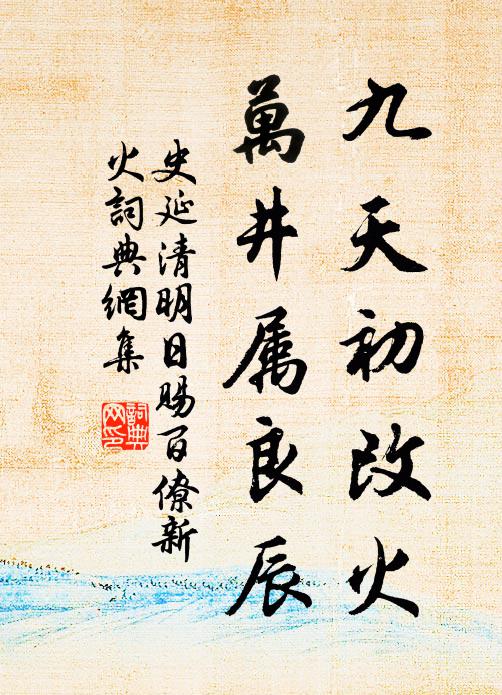 九天初改火
萬井属良辰
史延清明日賜百僚新
火詞典網集
詞典
网印